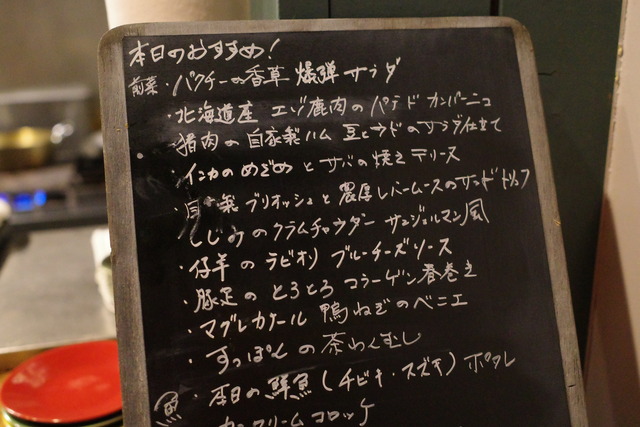 本日のおすすめ!
前菜・パクチーの香草 爆弾 サラダ
・北海道産 エゾ鹿肉の パテド カンパーニュ
・猪肉の 自家製ハム 豆とウドのサラダ仕立て
・インカのめざめ と サバの焼き テリーヌ
・自家製 ブリオッシュと 濃厚レバームースのサンド トリュフ
・しじみの クラムチャウダー サンジェルマン風
・仔羊の ラビオリ ブルーチーズソース
・豚足の とろとろ コラーゲン春巻き
・マグレカナール 鴨ねぎのベニエ
・すっぽんの 茶わんむし
魚・本日の 鮮魚(チビキ・スズキ) ポワレ
クリームコロッケ